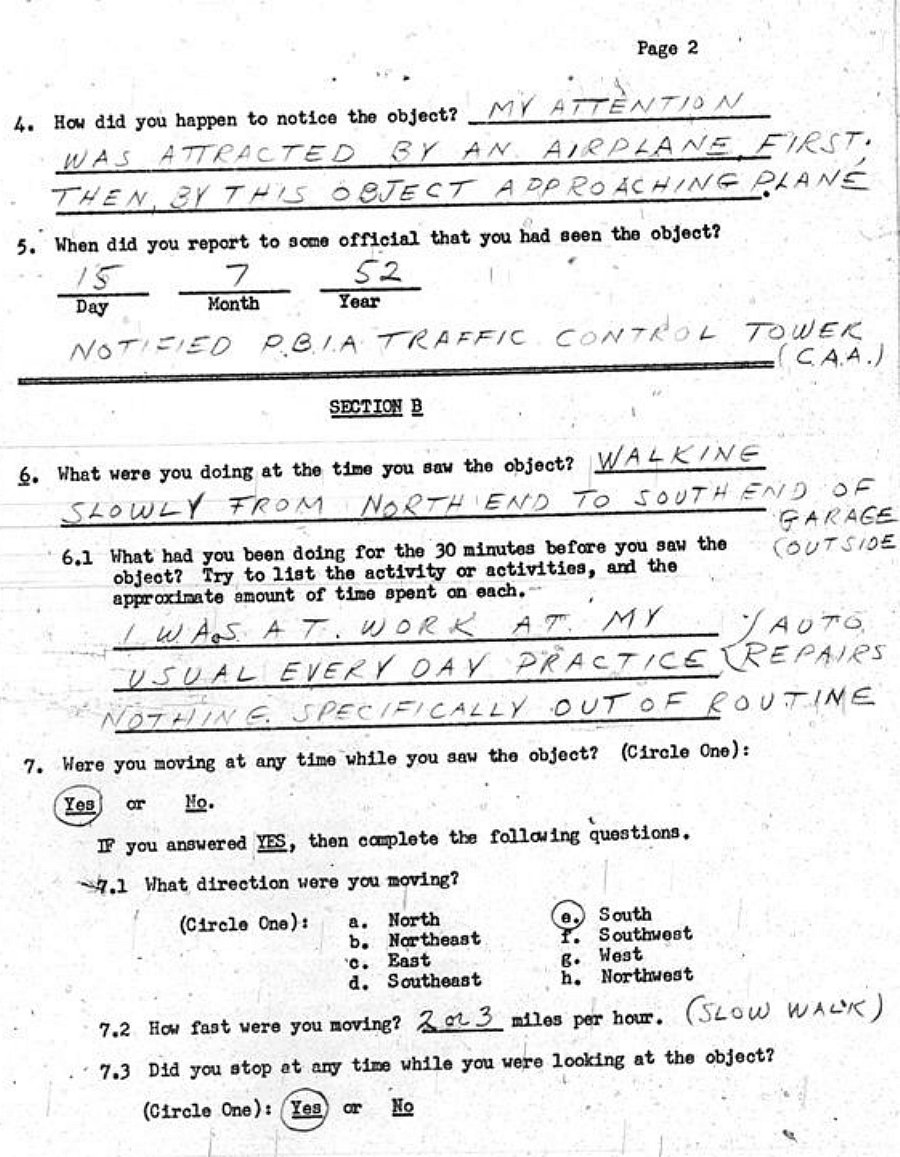 Page 2
4. How did you happen to notice the object? MY ATTENTION
WAS ATTRACTED BY AN AIRPLANE, FIRST.
THEN, BY THIS OBJECT APPROACHING PLANE.
5. When did you report to some official that you had seen the object?
15 7 52
Day Month Year
NOTIFIED P.B.I.A TRAFFIC CONTROL TOWER
(C.A.A.)
SECTION B
6. What were you doing at the time you saw the object? WALKING
SLOWLY FROM NORTH END TO SOUTH END OF
GARAGE
(OUTSIDE
6.1 What had you been doing for the 30 minutes before you saw the
object? Try to list the activity or activities, and the
approximate amount of time spent on each.
I WAS AT WORK AT MY
USUAL EVERY DAY PRACTICE (AUTO REPAIRS
NOTHING SPECIFICALLY OUT OF ROUTINE
7. Were you moving at any time while you saw the object? (Circle One):
Yes or No.
IF you answered YES, then complete the following questions.
7.1 What direction were you moving?
(Circle One): a. North e. South
b. Northeast f. Southwest
c. East g. West
d. Southeast h. Northwest
7.2 How fast were you moving? 2 or 3 miles per hour. (SLOW WALK)
7.3 Did you stop at any time while you were looking at the object?
(Circle One): Yes or No